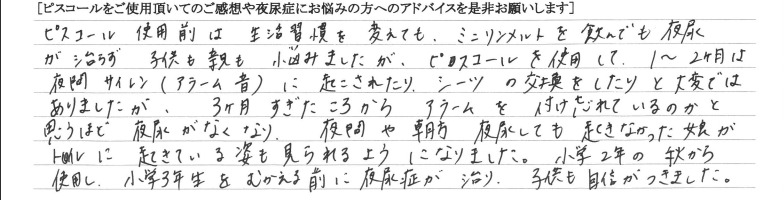 [ピスコールをご使用頂いてのご感想や夜尿症にお悩みの方へのアドバイスを是非お願いします]
ピスコール 使用前は 生活習慣を 変えても、ミニリンメルトを 飲んでも 夜尿
が 治らず 子供も 親も 悩みましたが、ピスコールを 使用して、1〜2ヶ月は
夜間 サイレン(アラーム音)に 起こされたり、シーツの交換をしたりと 大変では
ありましたが、3ヶ月 すぎたころから アラームを 付け忘れているのかと
思うほど 夜尿がなくなり、夜間や 朝方 夜尿しても 起きなかった 娘が
トイレに 起きている 姿も 見られるようになりました。小学2年の 秋から
使用し、小学3年生を むかえる前に 夜尿症が 治り、子供も 自信がつきました。